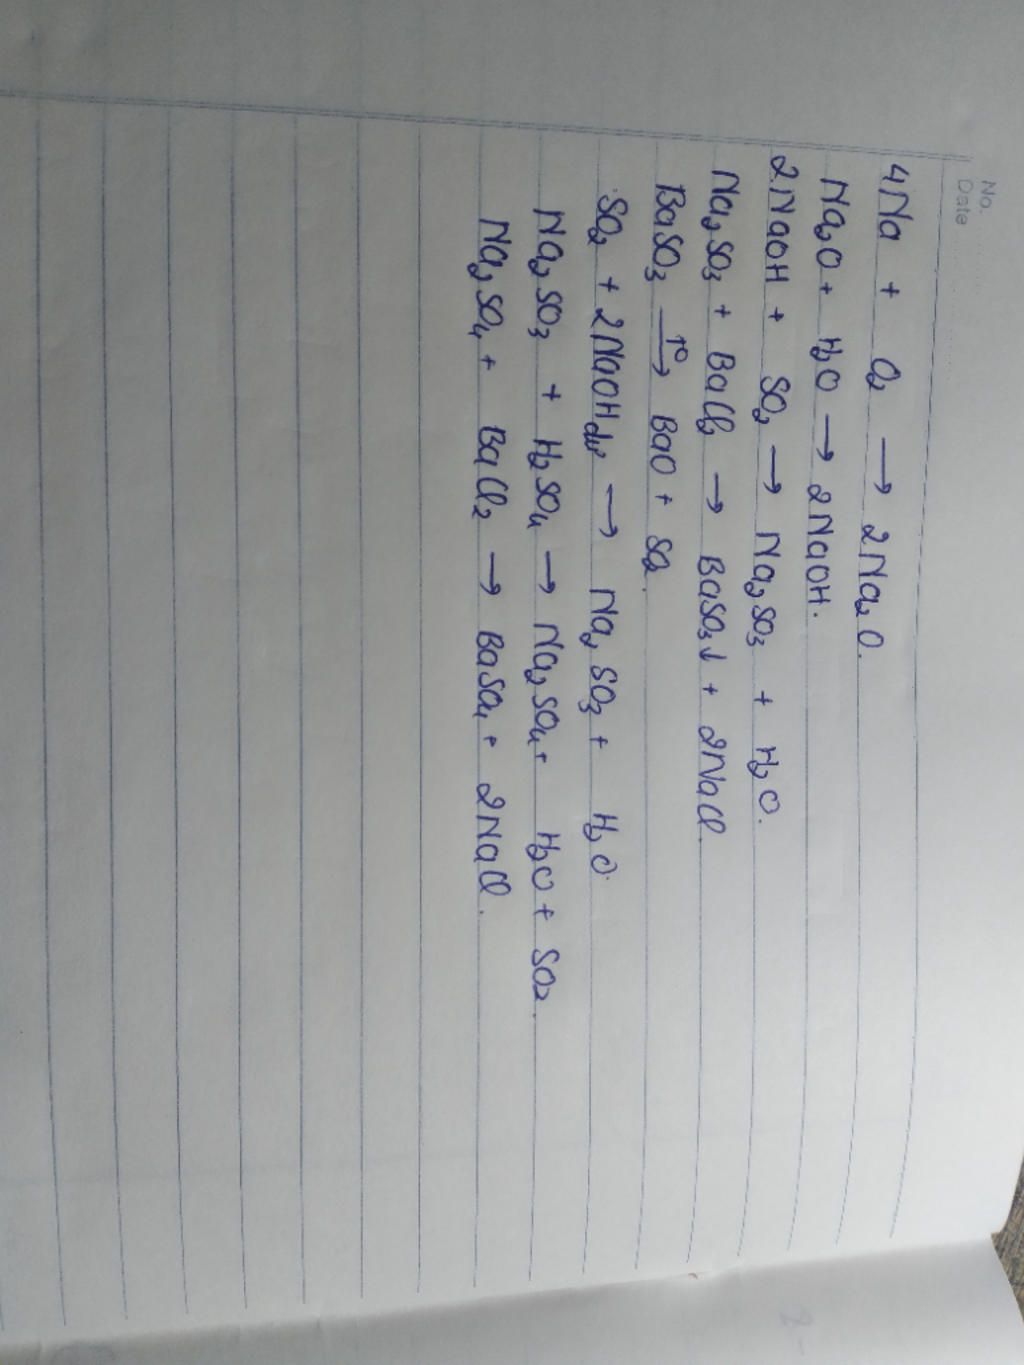 No.
Date
4Na + O₂ → 2Na₂O.
Na₂O + H₂O → 2NaOH.
2NaOH + SO₂ → Na₂SO₃ + H₂O.
Na₂SO₃ + BaCl₂ → BaSO₃↓ + 2NaCl.
BaSO₃ →(t°) BaO + SO₂.
SO₂ + 2NaOH dư → Na₂SO₃ + H₂O.
Na₂SO₃ + H₂SO₄ → Na₂SO₄ + H₂O + SO₂.
Na₂SO₄ + BaCl₂ → BaSO₄ + 2NaCl.